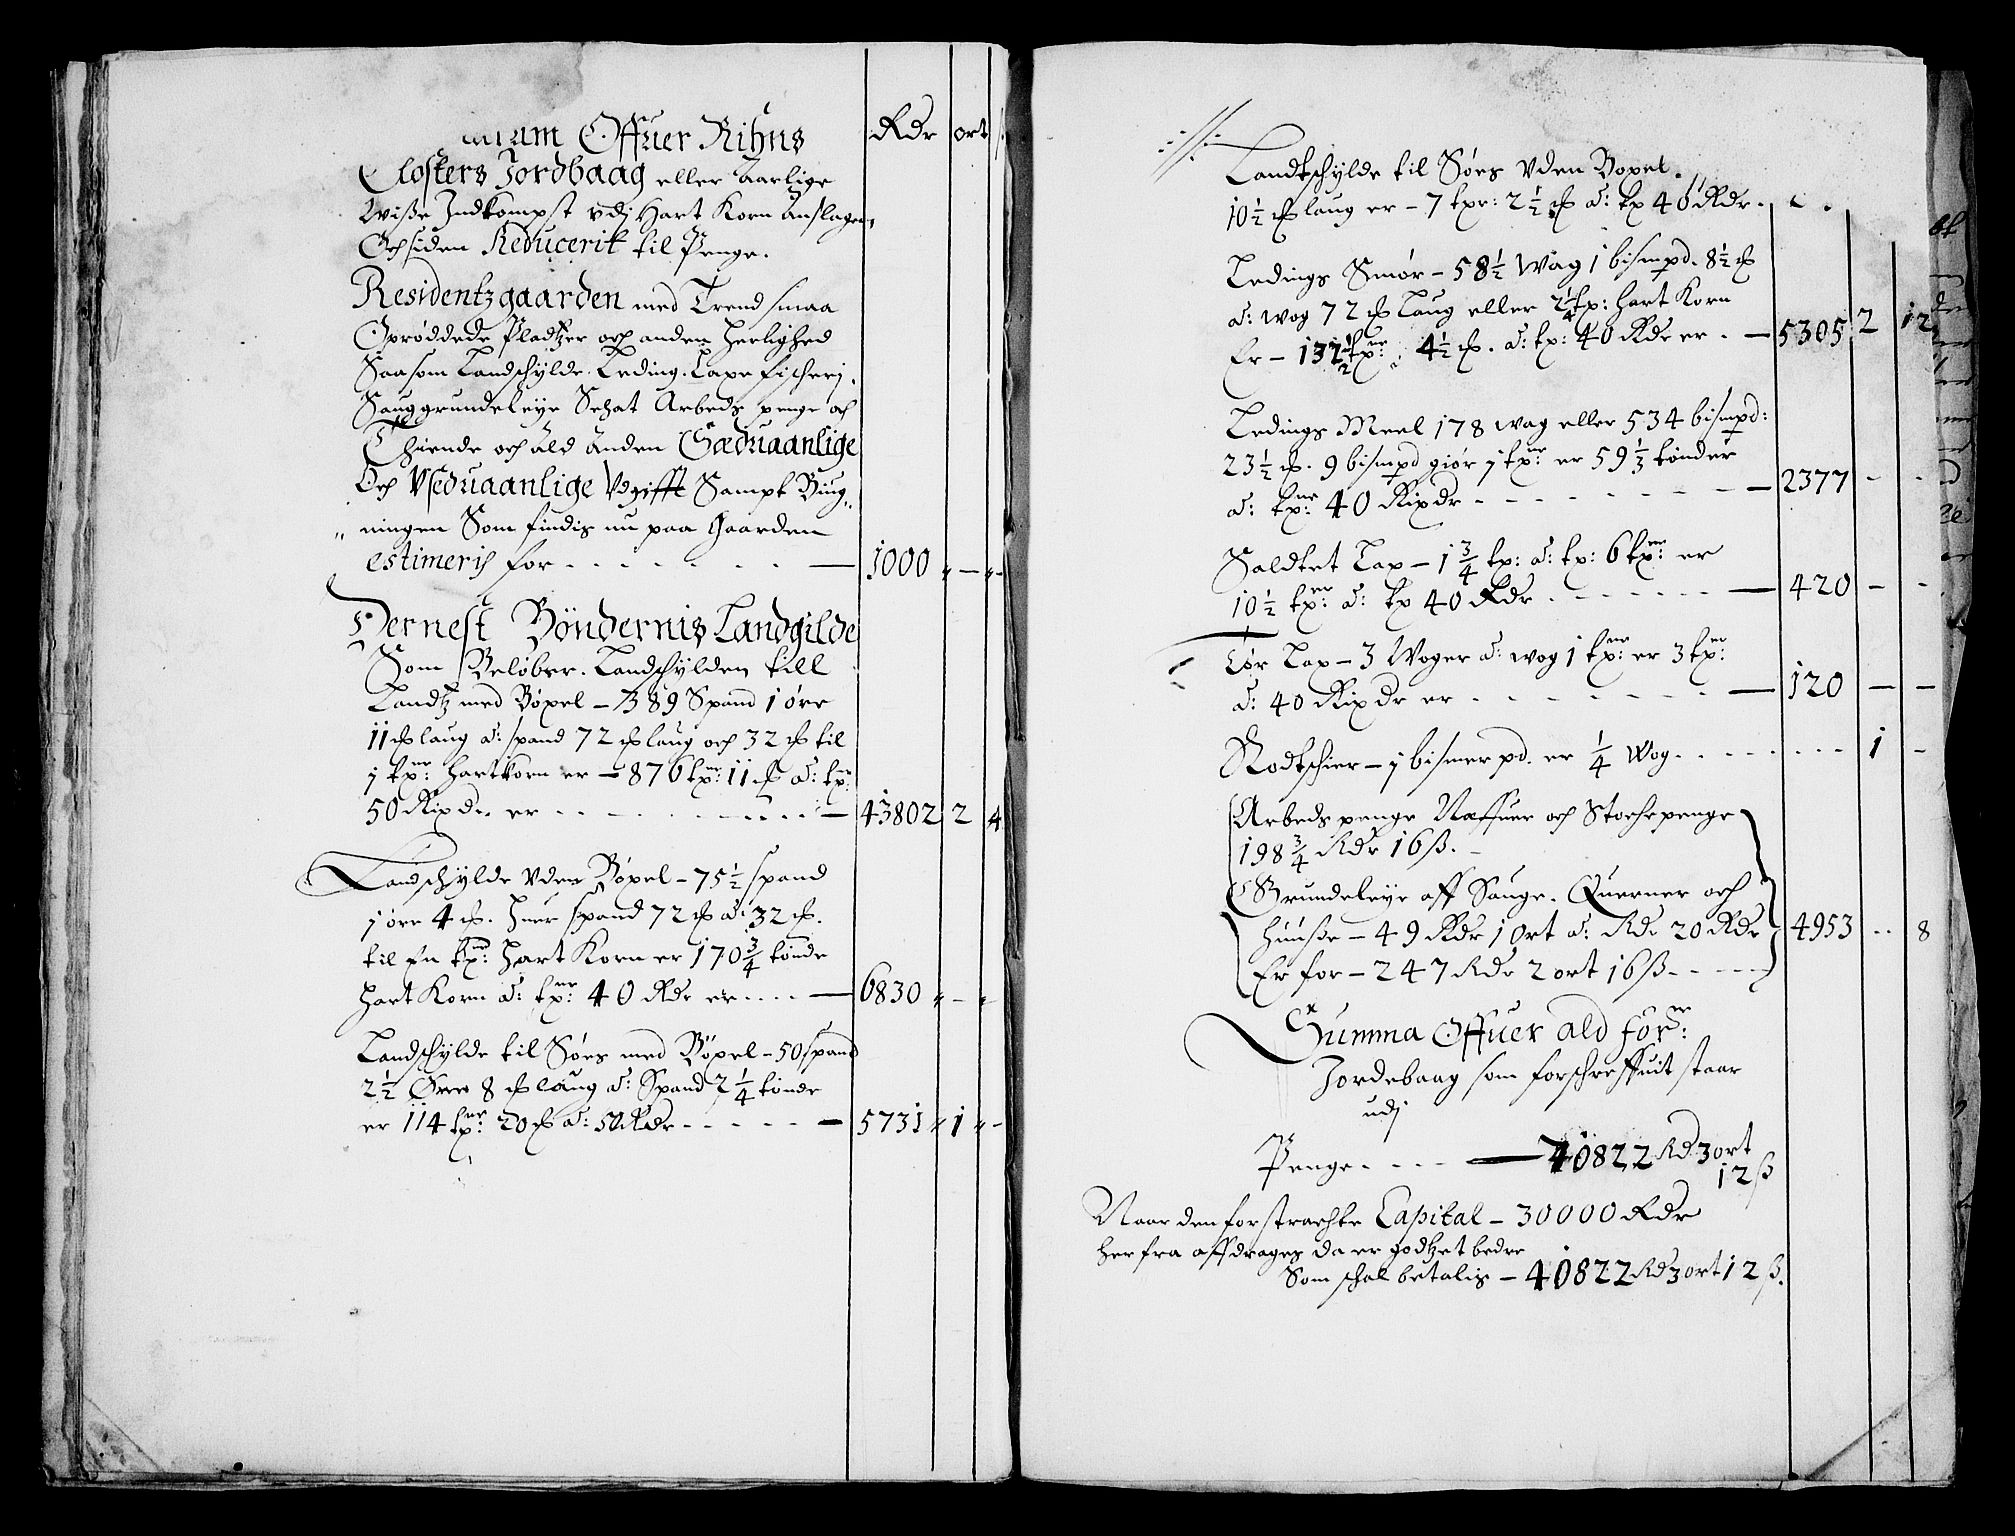 Offuer Rihns Rdr ort
Closters Jordbaag eller Aarlige
Wisse Indkompst vdj Hart Korn Anslagen
Och siden Reducerit til Penge.
Residentzgaarden med Trend smaa
Oprøddede Pladtzer och anden Herlighed
Saasom Landschylde Leding Laxe fischerj
Sauggrundeleye Schat Arbeds penge och
Thiende och ald anden Sæduaanlige
Och Vseduaanlige Vdgifft Sampt Biug,,
,, ningen Som findis nu paa Gaarden
estimeris for - - - - - - - 1000 ,, - ,, -
Dernest Böndernis Landgilde
Som Beløber. Landschylden till
Landtz med Böpel - 389 Spand 1 øre
11 laug a: spand 72 laug och 32 til
j tpr: hartkorn er - 876 tpr: 11 a: tpr:
50 Rixdr. er - - - - - - - 43802 2 4
Landschylde Vden Böpel - 75 1/2 spand
j øre 4 . huer spand 72 a: 32 .
til En tpr: Hart Korn er 170 3/4 tønde
Hart Korn a: tpr: 40 Rdr er - - - - 6830 ,, - ,,
Landschylde til Søes med Böpel - 50 spand
2 1/2 Ører 8 laug a: Spand 2 1/4 tønde
er 114 tpr: 20 a: 50 Rdr - - - - - - 5731 ,, 1 ,, -
./.
Landtschylde til Søes Vden Bopel.
10 1/2 laug er - 7 tpr: 2 1/2 a: tp 40 Rdr.
Ledings Smør - 58 1/2 Wag 1 bismpd. 8 1/2
a: wog 72 Laug eller 2 1/4 tp: Hart Korn
Er - 132 1/2 tpr: 4 1/2 . a: tp: 40 Rdr er. - 5305 2 12
Ledings Meel 178 wag eller 534 bismpd:
23 1/2 . 9 bismpd giør j tpr er 59 1/3 tønder
a: tpr: 40 Rixdr - - - - - - - - 2377 - -
Saldtet Lax - 1 3/4 tp: a: tp: 6 tpr: er
10 1/2 tpr: a: tp 40 Rdr. - - - - - - 420 - -
Tør Lax - 3 Woger a: wog 1 tpr: er 3 tpr:
a: 40 Rixdr er - - - - - - - - 120 - -
Rodtschier - j bismerpd. er 1/4 Wog. - - - - - - - 1 -
Arbeds penge Næffuer och Stochepenge
198 3/4 Rdr 16 ß. -
Grundeleye aff Sauge. Querner och
Huusse - 49 Rdr 1 Ort a: Rdr 20 Rdr 4953 - - 8
Er for - 247 Rdr 2 ort 16 ß - - - - -
Summa Offuer ald for:
Jordebaag som forschreffuit staar
udj
Penge - - - - 70822 Rd 3 ort
12 ß
Naar den forstrachte Capital - 30000 Rdr
herfra affdrages da er godtzet bedre
Som schal betalis - 40822 Rd 3 ort 12 ß.